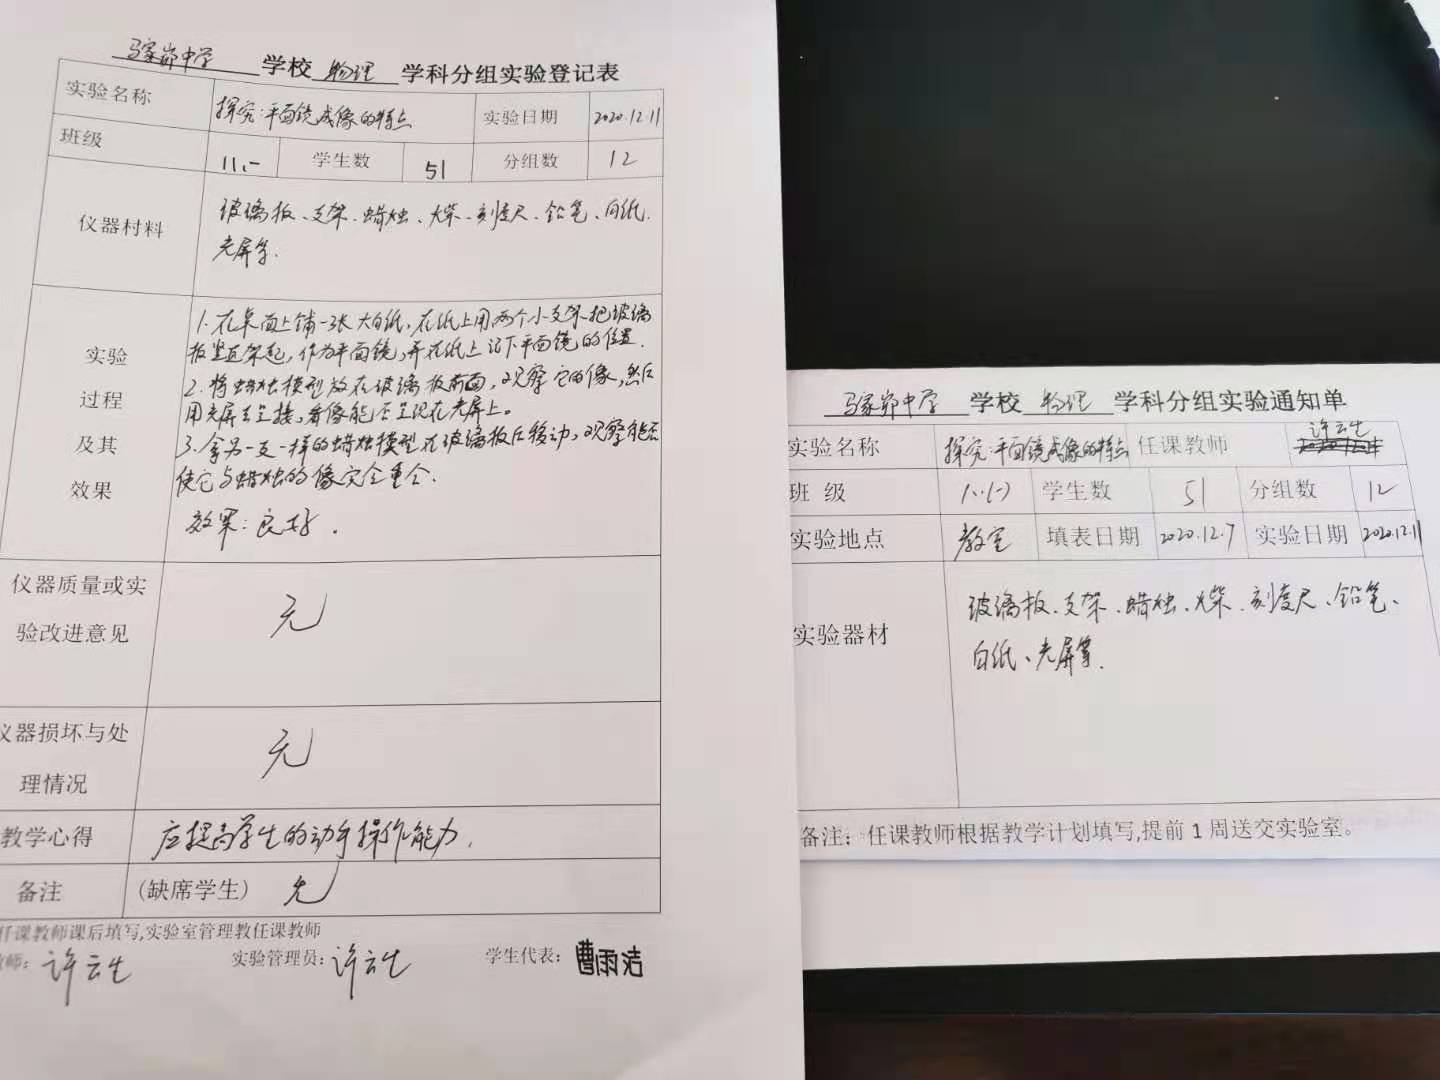 马家峁中学 学校 物理 学科分组实验登记表
实验名称 探究:平面镜成像的特点 实验日期 2020.12.11
班级 学生数 51 分组数 12
仪器材料 玻璃板、支架、蜡烛、火柴、刻度尺、铅笔、白纸、
光屏等.
实验过程及其效果
1.在桌面上铺一张大白纸,在纸上用两个小支架把玻璃
板竖直架起,作为平面镜,并在纸上记下平面镜的位置.
2.将蜡烛模型放在玻璃板前面,观察它的像,然后
用光屏去承接,看像能否呈现在光屏上。
3.拿另一支一样的蜡烛模型在玻璃板后移动,观察能否
使它与蜡烛的像完全重合.
效果:良好.
仪器质量或实
验改进意见 无
仪器损坏与处
理情况 无
教学心得 应提高学生的动手操作能力.
备注 (缺席学生) 无
任课教师课后填写,实验室管理教任课教师
教师: 许云生 实验管理员: 许云生 学生代表: 曹雨洁
马家峁中学 学校 物理 学科分组实验通知单
实验名称 探究:平面镜成像的特点 任课教师 许云生
班 级 学生数 51 分组数 12
实验地点 教室 填表日期 2020.12.7 实验日期 2020.12.11
实验器材 玻璃板、支架、蜡烛、火柴、刻度尺、铅笔、
白纸、光屏等.
备注: 任课教师根据教学计划填写,提前 1 周送交实验室。